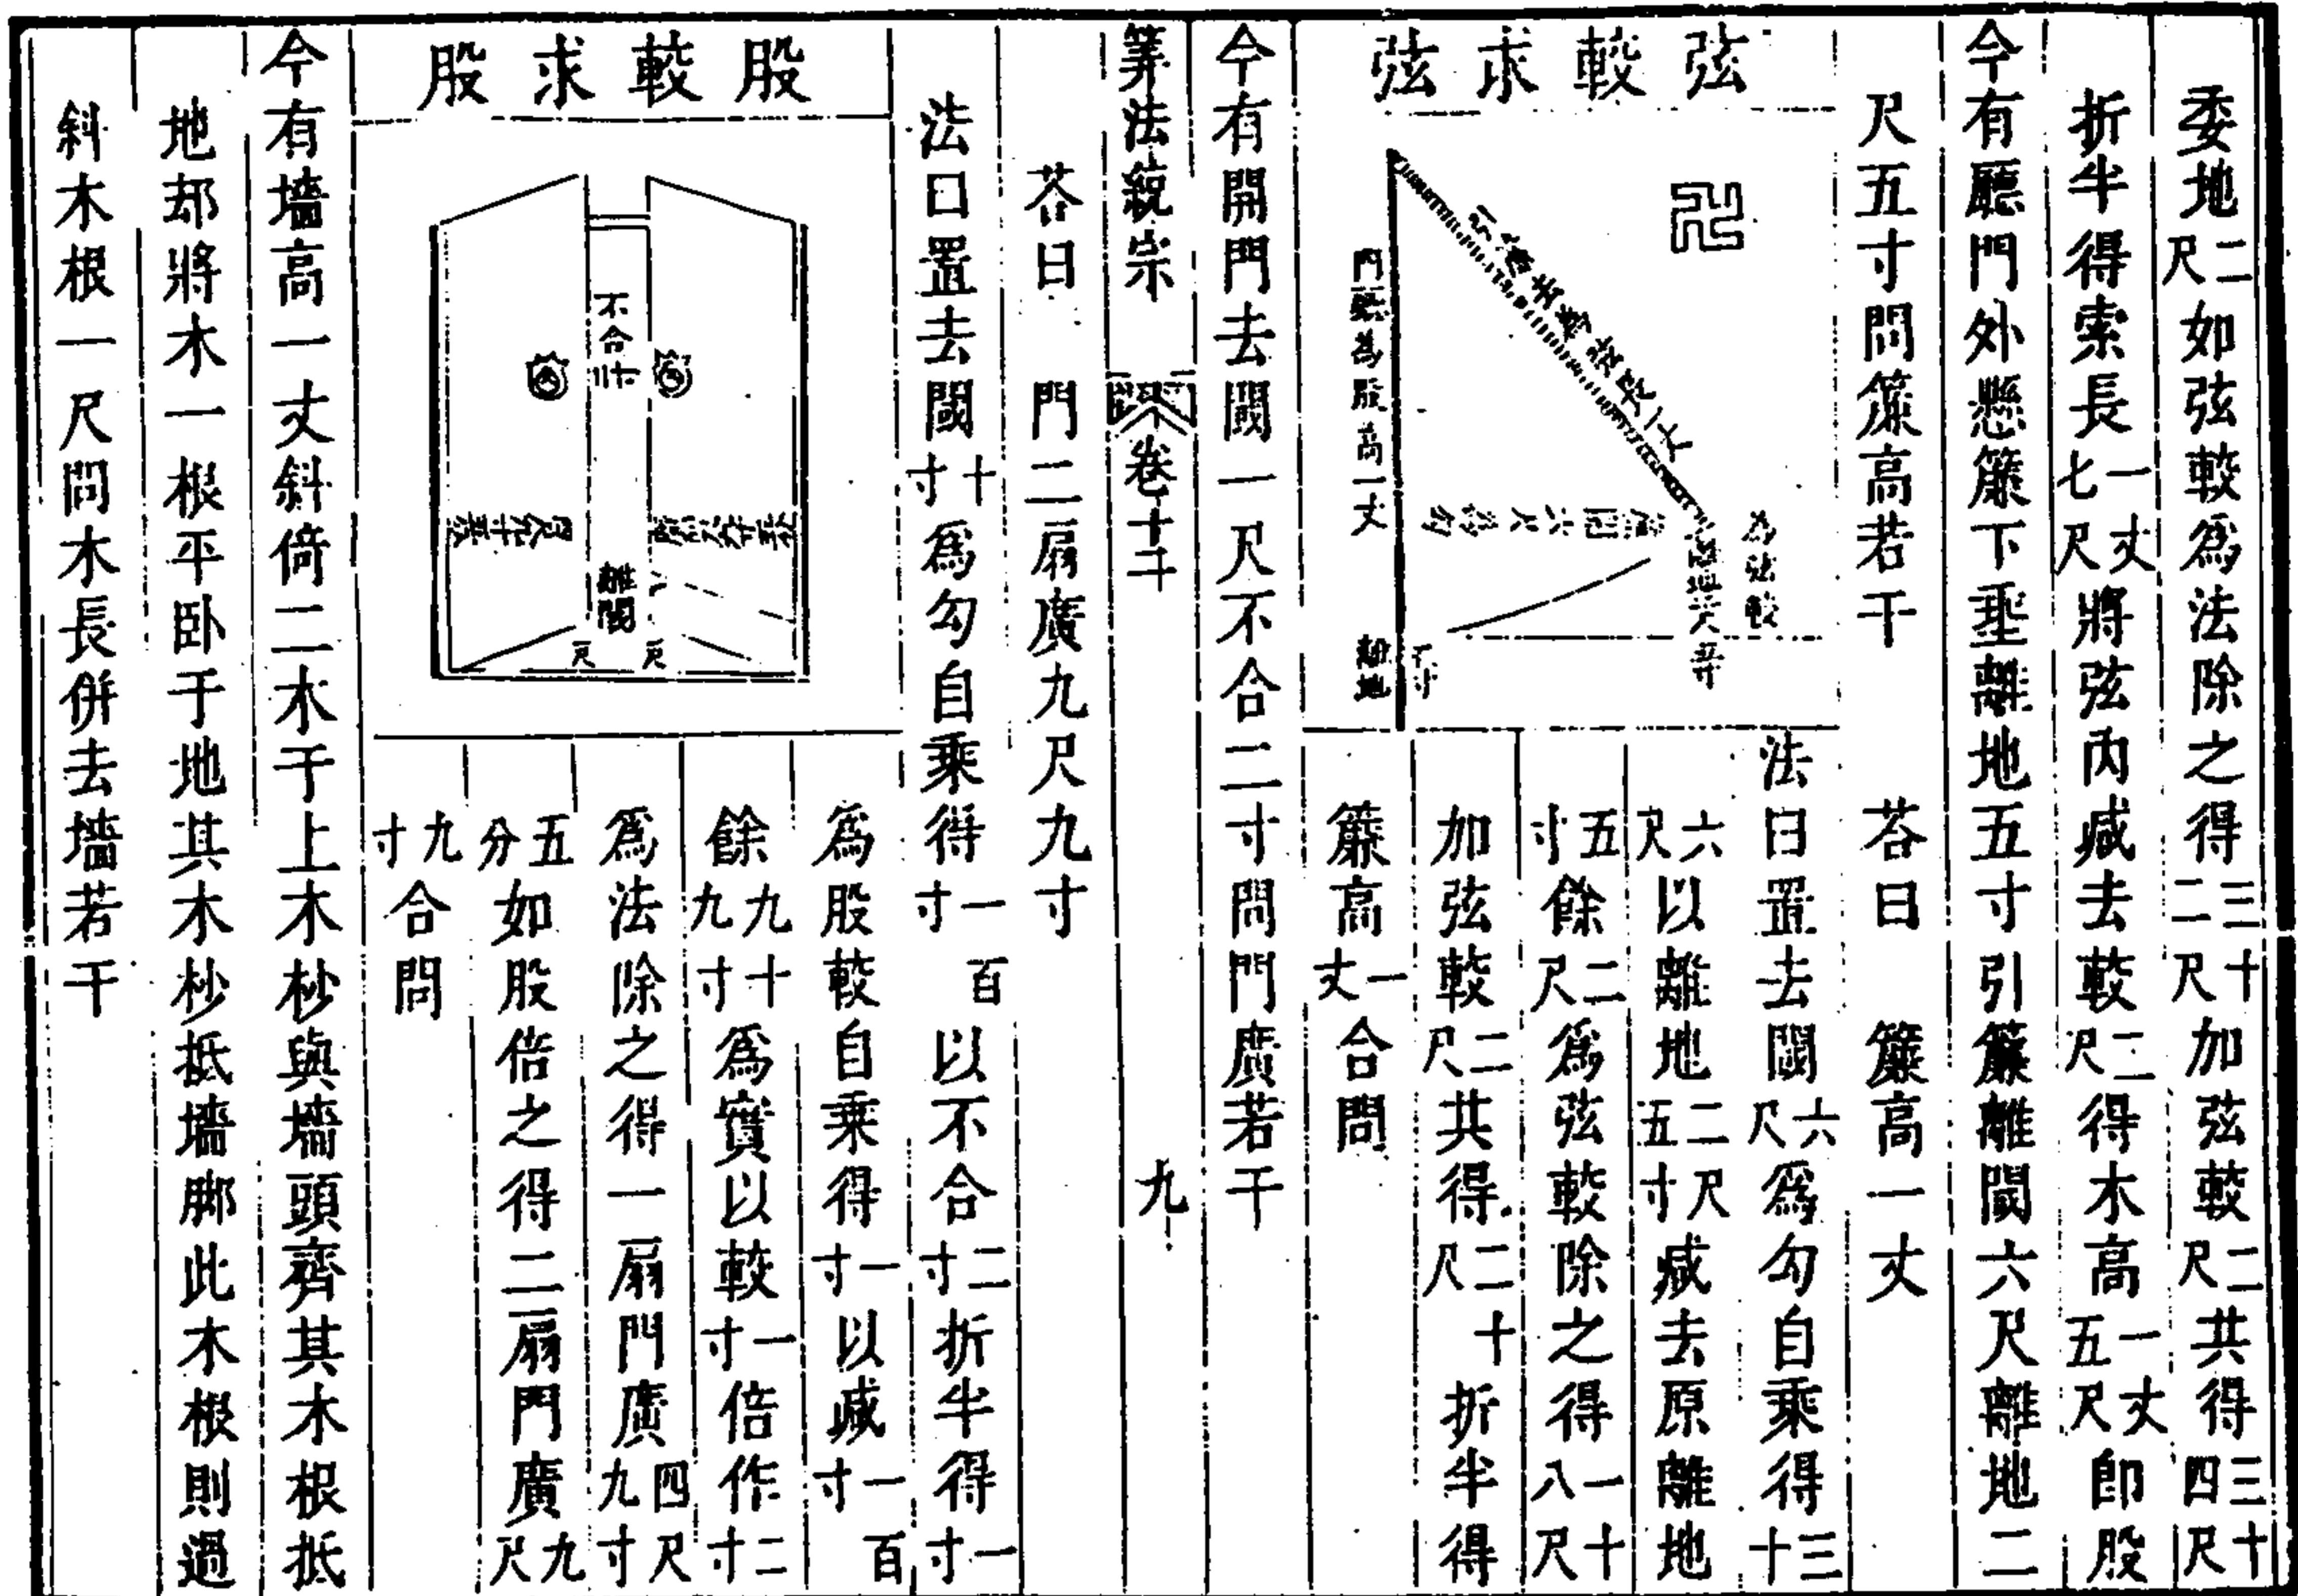 委地二尺如弦較為法除之得三十二尺加弦較二尺共得三十四尺
折半得索長一丈七尺將弦內减去較二尺得木高一丈五尺即股
今有廳門外懸簾下垂離地五寸引簾離閾六尺離地二
尺五寸問簾高若干 荅曰 簾高一丈
弦較求弦
卍
門頭為股高一丈
離地
五寸
為弦較
法曰置去閾六尺為勾自乘得三十
六尺以離地二尺五寸减去原離地
五寸餘二尺為弦較除之得一十八尺
加弦較二尺共得二十尺折半得
簾高一丈合問
今有開門去閾一尺不合二寸問門廣若干
算法統宗 卷十二 九
荅曰 門二扇廣九尺九寸
法曰置去閾十寸為勾自乘得一百寸以不合二寸折半得一寸
為股較自乘得一寸以减一百寸
餘九十九寸為實以較一寸倍作二寸
為法除之得一扇門廣四尺九寸
五分如股倍之得二扇門廣九尺
九寸合問
股較求股
不合二寸
離閾
一尺
今有墻高一丈斜倚二木于上木杪與墻頭齊其木根抵
地却將木一根平卧于地其木杪抵墻脚此木根則過
斜木根一尺問木長併去墻若干